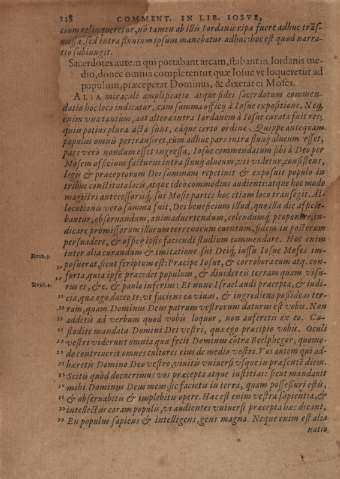 128 COMMENT. IN LIB. IOSVE,
tium relinqueretur, no tamen ab illis Iordanis ripa fuere adhuc trās
mossa, sed intra sinum ipsum manebatur adhuc: hoc est quod narra-
tio subiungit.
Sacerdotes autem qui portabant arcam, stabant in Iordanis me-
dio, donec omnia complerentur, quæ Iosue vt loqueretur ad
populum, præceperat Dominus, & dixerat ei Moses.
ALIA miraculi amplificatio atque fidei sacerdotum commen-
datio hoc loco indicatur, cum summa officij à Iosue expositione. Neq.
enim vna tantum, aut altera intra Iordanem à Iosue curata fuit res,
quin potius plura acta sunt, eáque certo ordine. Quippe antequam
populus omnis pertransiret, cum adhuc pars intra sinus alueum esset,
pars vero nondum esset ingressa, Iosue commendatum sibi à Deo per
Mosem officium facturus intra sinus alueum, vti videtur, consistens,
legis & præceptorum Dei summam repetiuit & exposuit populo in
tribus constituta locis, atque ideo commodius audienti atque hoc modo
magistri antecessoris sui Mosis partes hoc etiam loco transegit. Al-
locutionis vero summa fuit, Dei beneficium illud, quo illa die afficie-
bantur, obseruandum, animaduertendum, celendumq; proponere, in-
dicare promissarum illarum terrarum cuentum, fidem in posterum
persuadere, & officij ipsis faciendi studium commendare. Hoc enim
inter alia curandum & imitatione sui Deus iussu Iosue Moses im-
posuerat, sicut scriptum est: Præcipe Iosue, & corrobora eum atq. con-
forta, quia ipse præcedet populum, & diuidet eis terram quam visu-
rus es, &c. & paulo inferius: Et nunc Israel audi præcepta, & iudi-
cia, quæ ego doceo te: vt faciens ea viuas, & ingrediens possideas ter-
ram, quam Dominus Deus patrum vestrorum daturus est vobis. Non
addetis ad verbum quod vobis loquor, non auferetis ex eo. Cu-
stodite mandata Domini Dei vestri, quæ ego præcipio vobis. Oculi
vestri viderunt omnia quæ fecit Dominus contra Beelphegor, quomo-
do contriuerit omnes cultores eius de medio vestri. Vos autem qui ad-
haeretis Domino Deo vestro, viuitis vniuersi vsque in præsentē diem.
Scitis quòd docuerim vos præcepta atque iustitias: sicut mandauit
mihi Dominus Deus meus: sic facietis in terra, quam possessuri estis,
& obseruabitis & implebitis opere. Hæc est enim vestra sapientia, &
intellectus coram populis, vt audientes vniuersi præcepta hæc dicant,
En populus sapiens & intelligens, gens magna. Neque enim est alia
natio